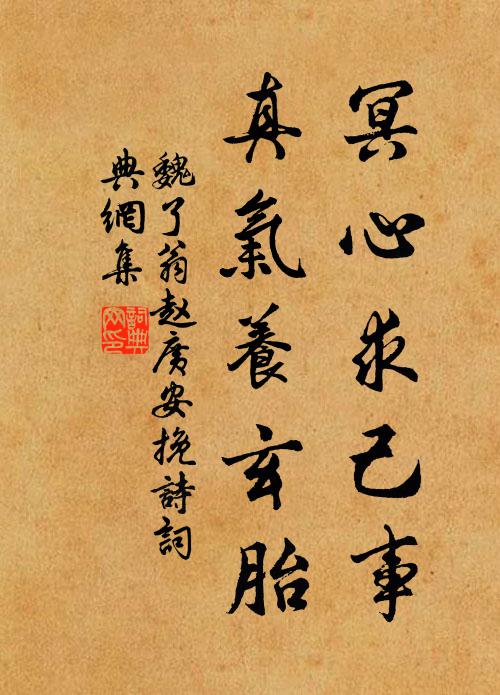 冥心求己事
真氣養玄胎
魏了翁赵廣安挽詩詞
典網集
詞典網印